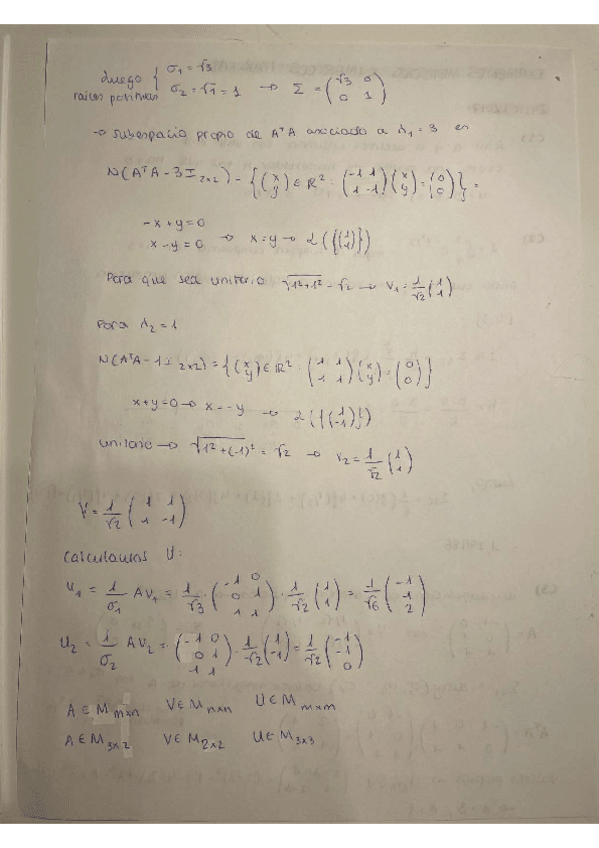 Luego { σ₁ = √3
raíces positivas { σ₂ = √1 = 1 → Σ = (√3 0 ; 0 1)
→ Subespacio propio de AᵀA asociado a λ₁ = 3 es
N(AᵀA - 3I₂ₓ₂) = {(x ; y) ∈ ℝ² : (-1 1 ; 1 -1)(x ; y) = (0 ; 0)} =
-x + y = 0
x - y = 0 → x = y → L({(1 ; 1)})
Para que sea unitario √(1²+1²) = √2 → v₁ = 1/√2 (1 ; 1)
Para λ₂ = 1
N(AᵀA - 1I₂ₓ₂) = {(x ; y) ∈ ℝ² : (1 1 ; 1 1)(x ; y) = (0 ; 0)}
x + y = 0 → x = -y → L({(1 ; -1)})
unitario → √(1²+(-1)²) = √2 → v₂ = 1/√2 (1 ; 1)
V = 1/√2 (1 1 ; 1 -1)
Calculamos U:
u₁ = 1/σ₁ Av₁ = 1/√3 · (-1 0 ; 0 1 ; 1 1) · 1/√2 (1 ; 1) = 1/√6 (-1 ; 1 ; 2)
u₂ = 1/σ₂ Av₂ = (-1 0 ; 0 1 ; 1 1) · 1/√2 (1 ; -1) = 1/√2 (-1 ; -1 ; 0)
A ∈ M ₘₓₙ V ∈ M ₙₓₙ U ∈ M ₘₓₘ
A ∈ M₃ₓ₂ V ∈ M₂ₓ₂ U ∈ M₃ₓ₃